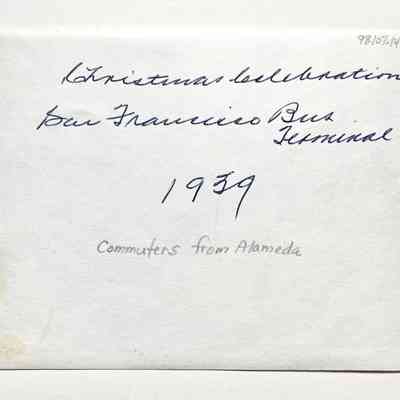 Christmas Celebration
San Francisco Bus
Terminal
1939
Commuters from Alameda